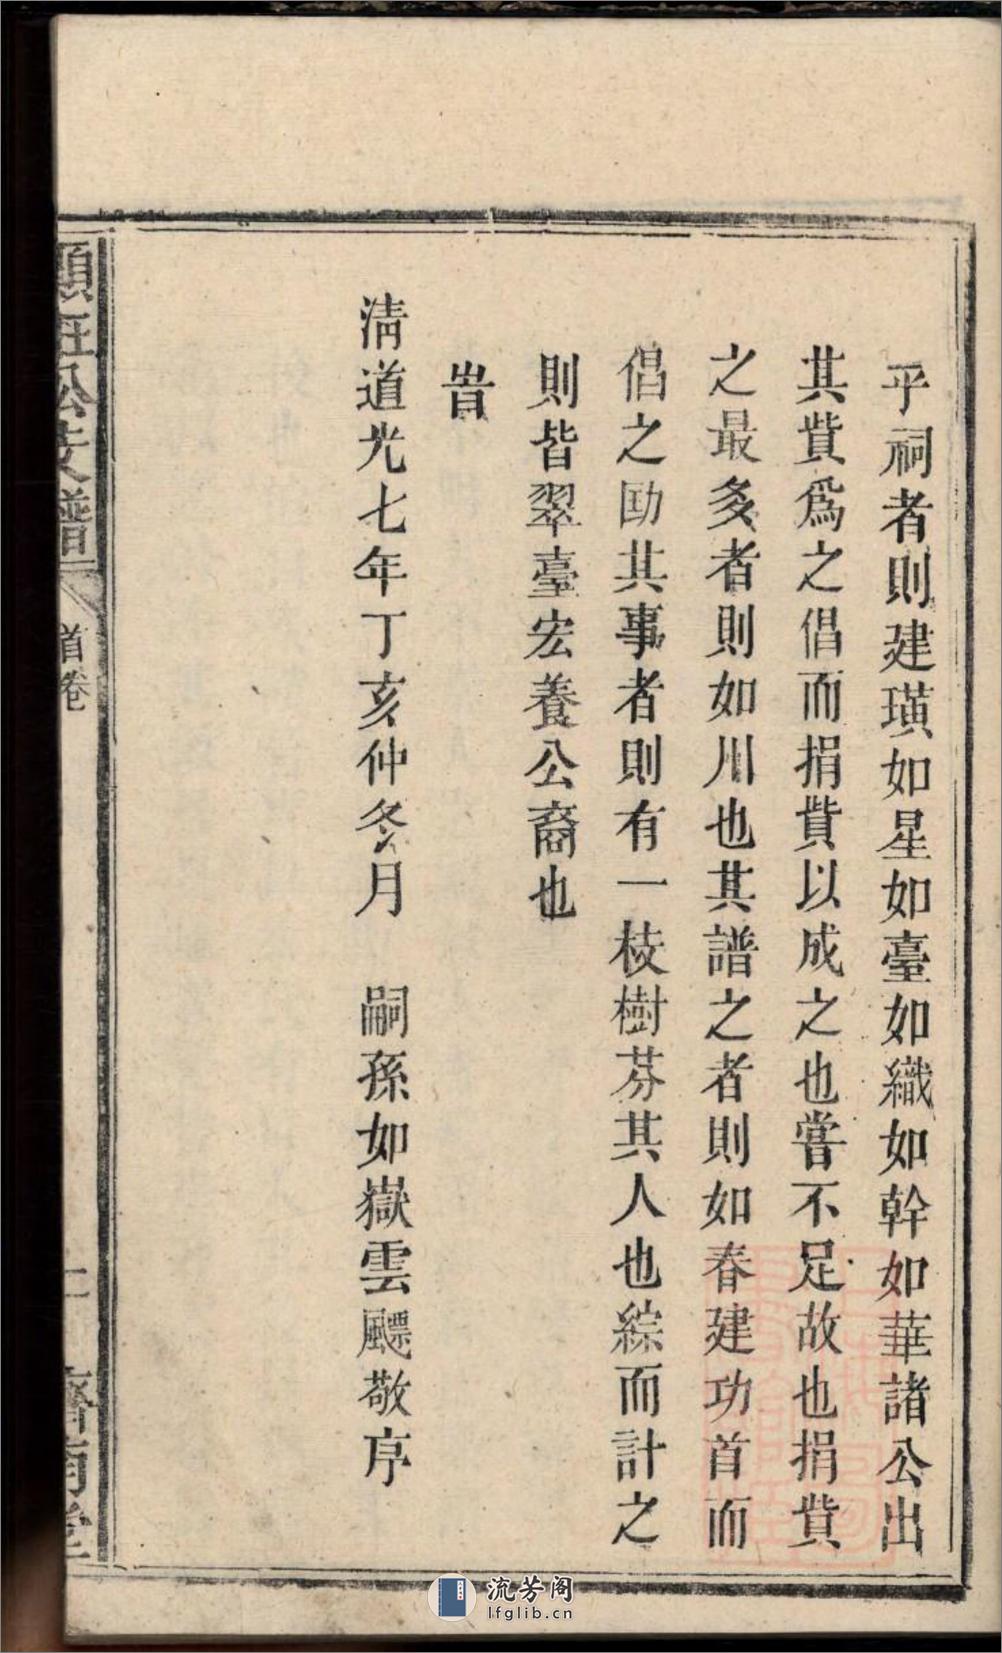 乎祠者則建璜如星如臺如織如幹如華諸公出
其貲爲之倡而捐貲以成之也嘗不足故也捐貲
之最多者則如川也其譜之者則如春建功首而
倡之勖其事者則有一枝樹芬其人也綜而計之
則皆翠臺宏養公裔也
旹
淸道光七年丁亥仲冬月　嗣孫如嶽雲颿敬序
公支譜
首卷
二
流芳阁
lfglib.cn